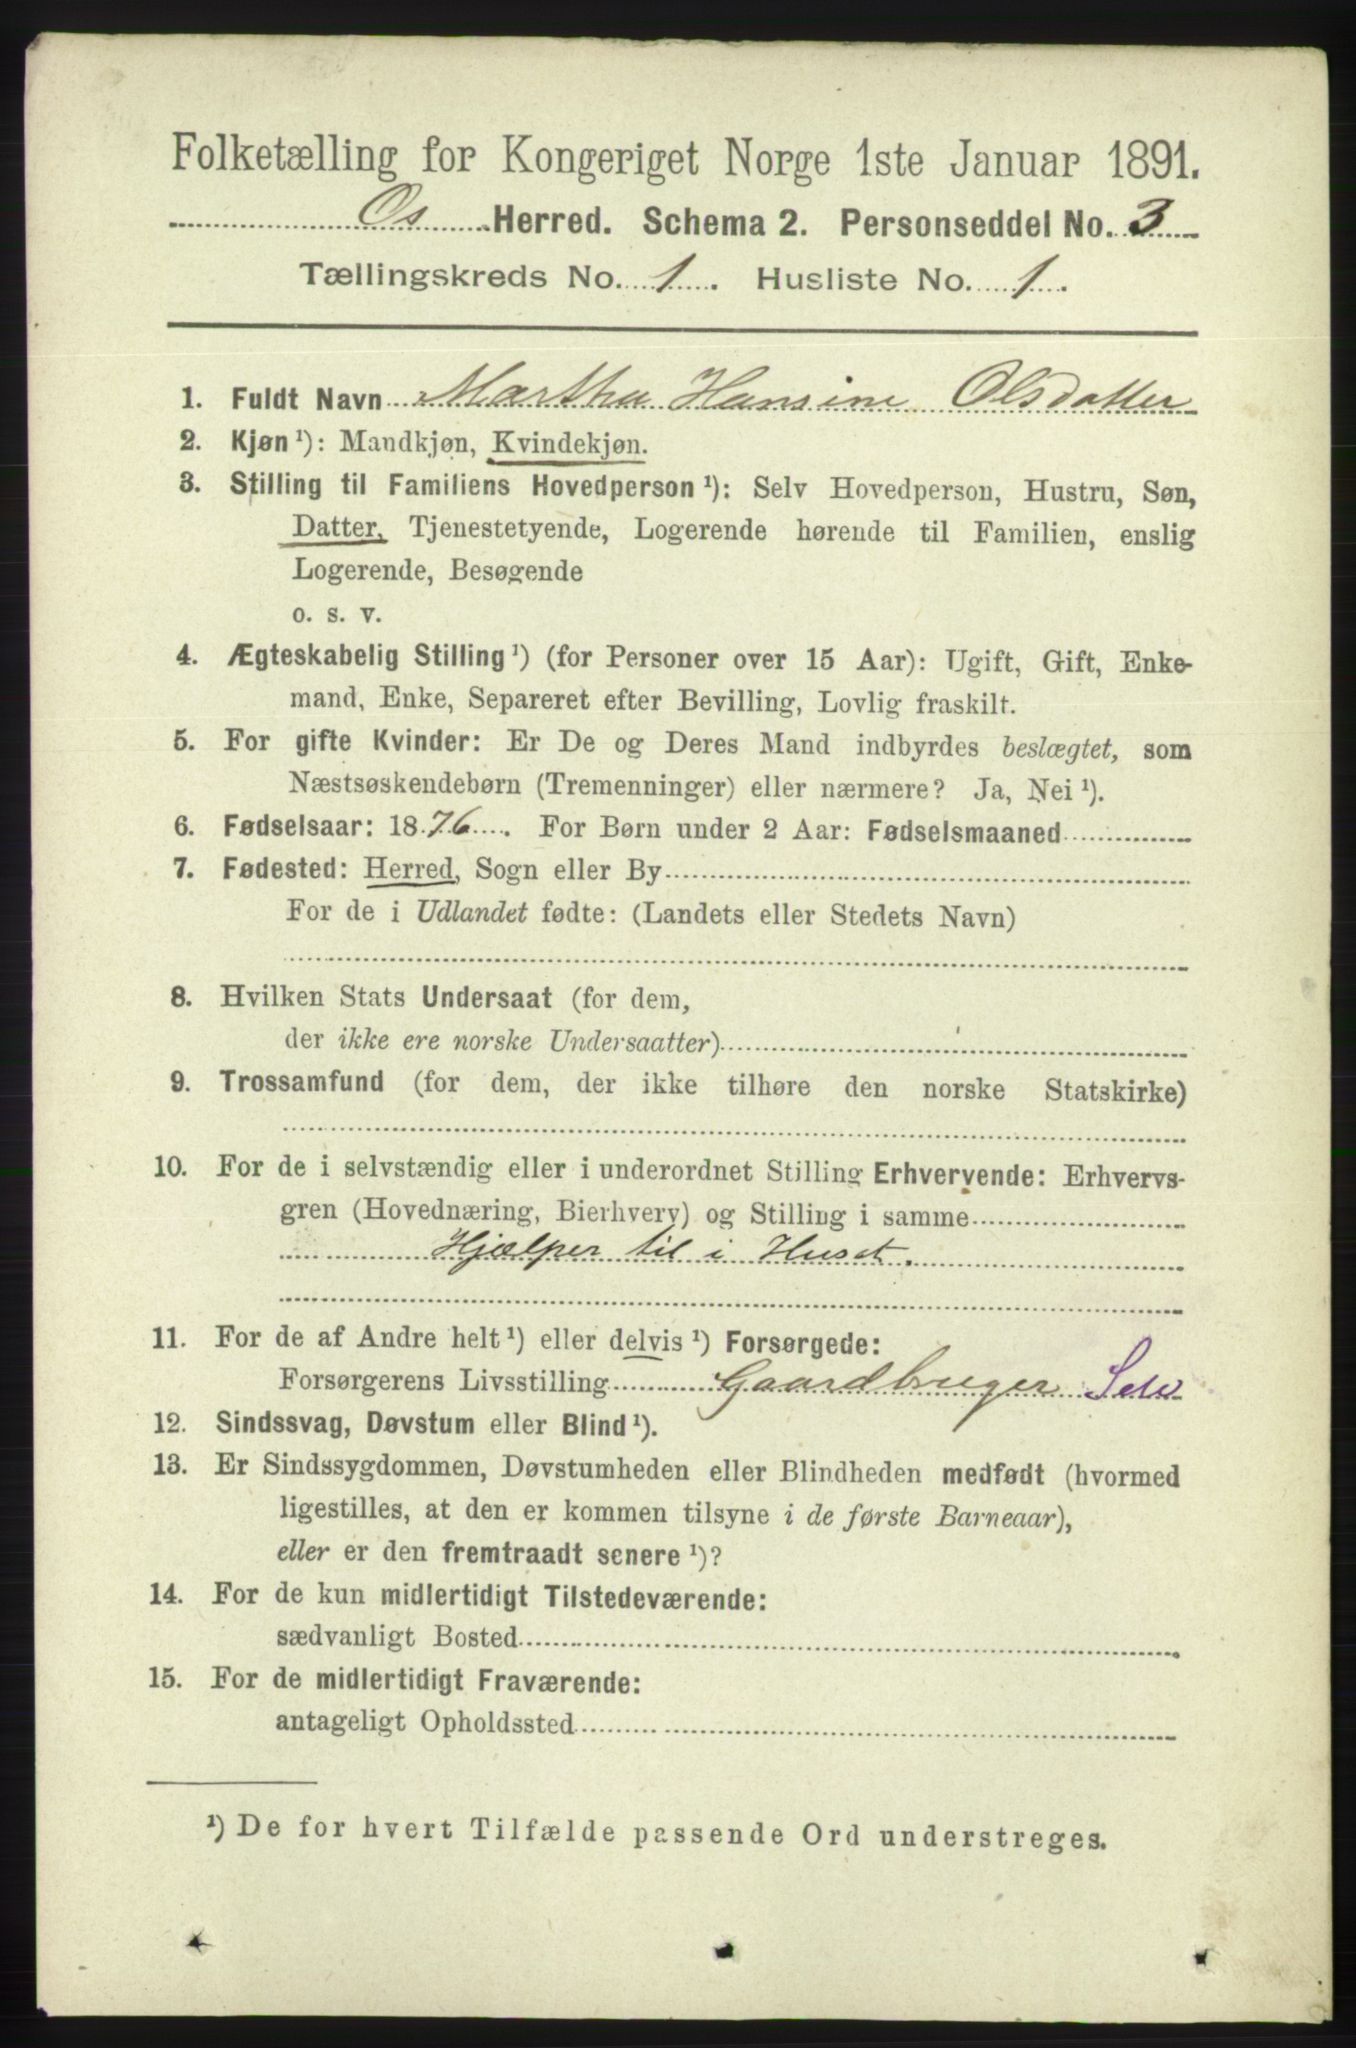 Folketælling for Kongeriget Norge 1ste Januar 1891.
Os Herred. Schema 2. Personseddel No. 3
Tællingskreds No. 1. Husliste No. 1.
1. Fuldt Navn Martha Hansine Olsdatter
2. Kjøn ¹): Mandkjøn, Kvindekjøn.
3. Stilling til Familiens Hovedperson ¹): Selv Hovedperson, Hustru, Søn,
Datter, Tjenestetyende, Logerende hørende til Familien, enslig
Logerende, Besøgende
o. s. v.
4. Ægteskabelig Stilling ¹) (for Personer over 15 Aar): Ugift, Gift, Enke-
mand, Enke, Separeret efter Bevilling, Lovlig fraskilt.
5. For gifte Kvinder: Er De og Deres Mand indbyrdes beslægtet, som
Næstsøskendebørn (Tremenninger) eller nærmere? Ja, Nei ¹).
6. Fødselsaar: 1876. For Børn under 2 Aar: Fødselsmaaned
7. Fødested: Herred, Sogn eller By
For de i Udlandet fødte: (Landets eller Stedets Navn)
8. Hvilken Stats Undersaat (for dem,
der ikke ere norske Undersaatter)
9. Trossamfund (for dem, der ikke tilhøre den norske Statskirke)
10. For de i selvstændig eller i underordnet Stilling Erhvervende: Erhvervs-
gren (Hovednæring, Bierhverv) og Stilling i samme
Hjælper til i Huset.
11. For de af Andre helt ¹) eller delvis ¹) Forsørgede:
Forsørgerens Livsstilling Gaardbruger Selv
12. Sindssvag, Døvstum eller Blind ¹).
13. Er Sindssygdommen, Døvstumheden eller Blindheden medfødt (hvormed
ligestilles, at den er kommen tilsyne i de første Barneaar),
eller er den fremtraadt senere ¹)?
14. For de kun midlertidigt Tilstedeværende:
sædvanligt Bosted
15. For de midlertidigt Fraværende:
antageligt Opholdssted
¹) De for hvert Tilfælde passende Ord understreges.